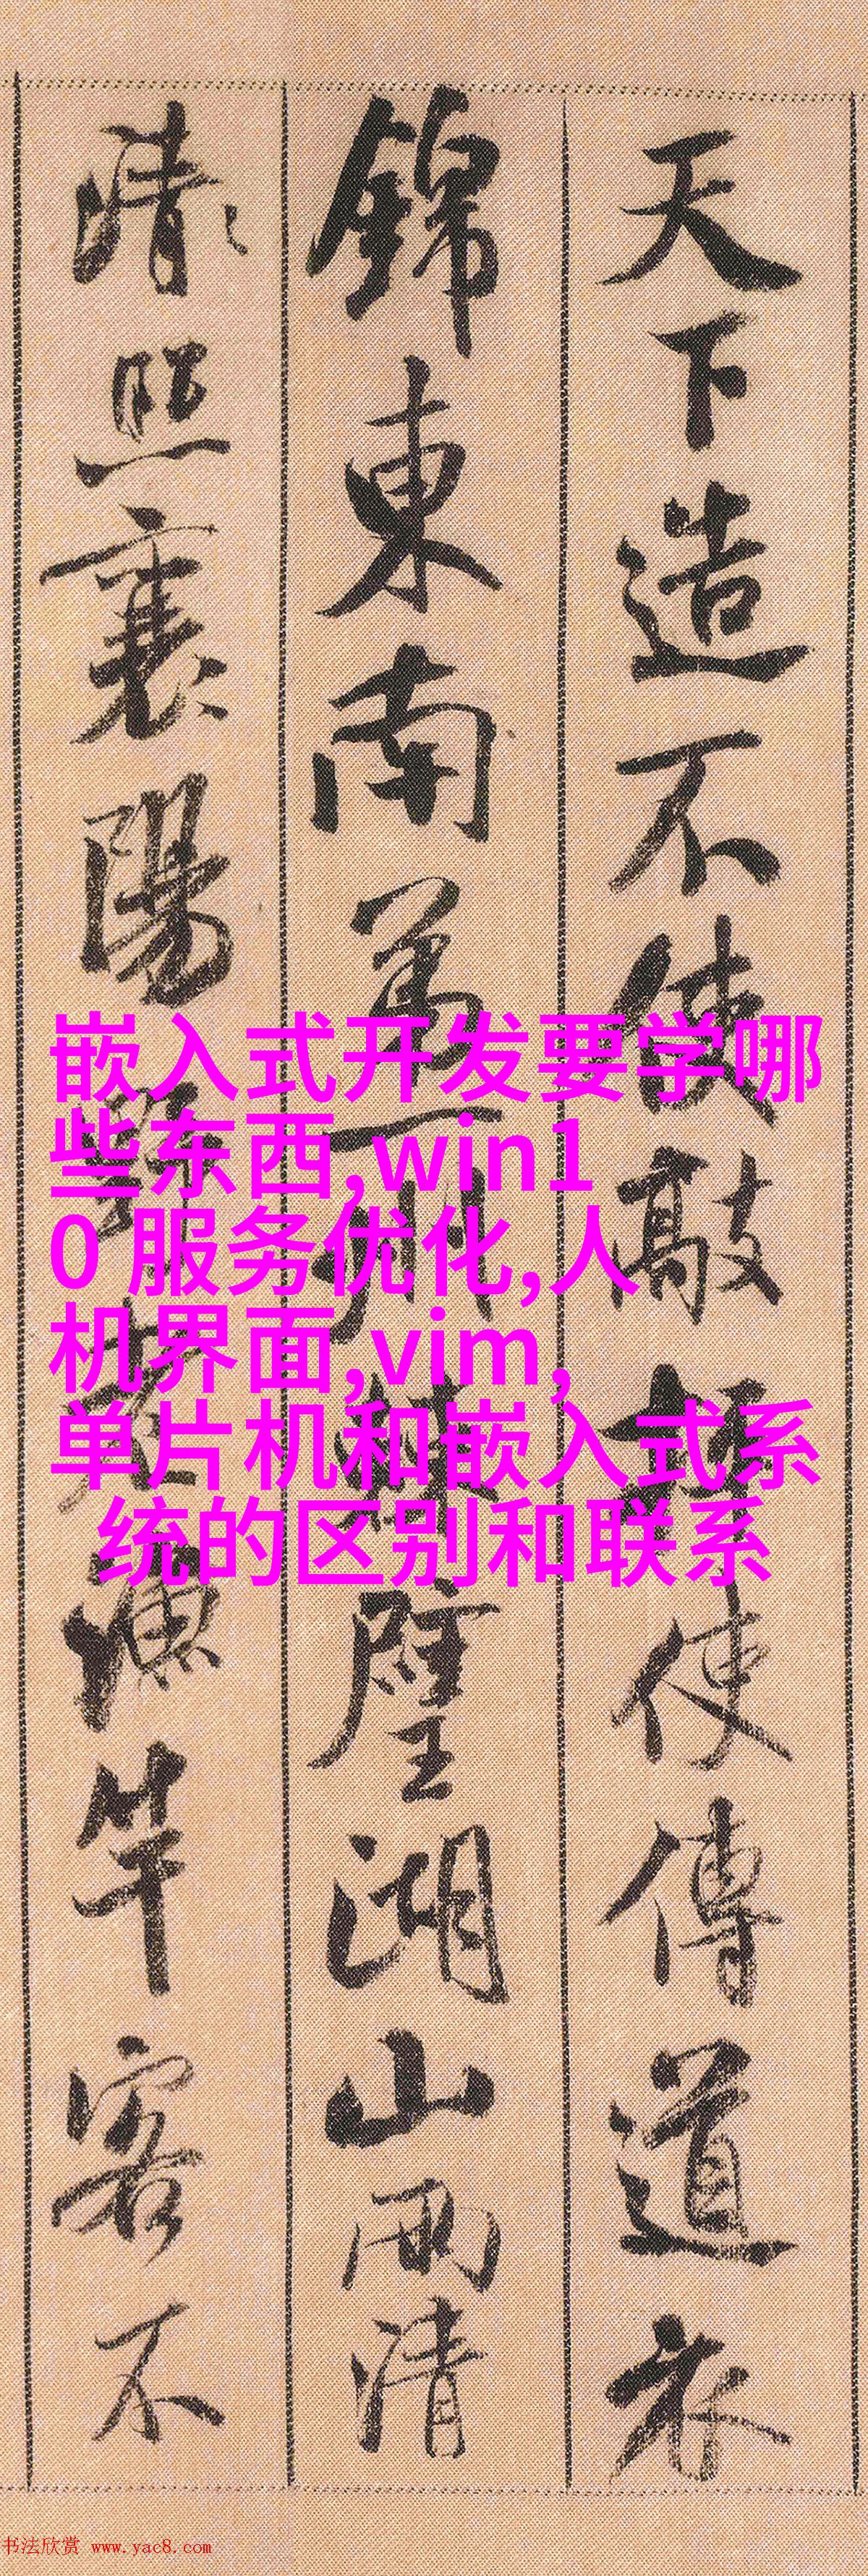 天下造不使敲枰使傳道衣
錦東南第一州棘璧湖山兩清
清照襄陽野老漁竿客不
嵌入式开发要学哪
些东西,win1
0 服务优化,人
机界面,vim,
单片机和嵌入式系
统的区别和联系
书法欣赏 www.yac8.com